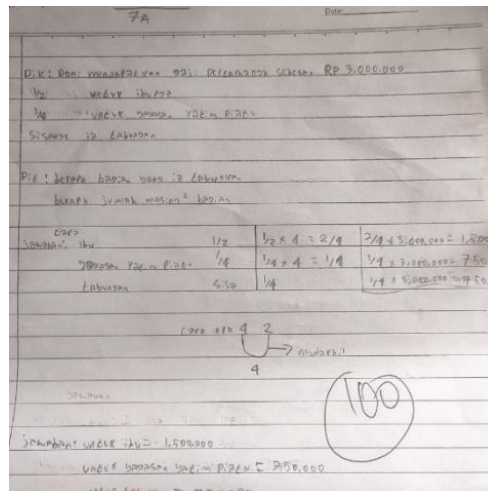 7A
Date
Dik: Doni mendapatkan gaji pertamanya sebesar RP 3.000.000
1/2 untuk ibunya
1/4 untuk yayasan Yatim Piatu
Sisanya ia tabungan
Dit: berapa bagian yang ia tabungkan
berapa jumlah masing² bagian
cara
jawaban: ibu 1/2 1/2 x 4 = 2/4 2/4 x 3.000.000 = 1,500
yayasan Yatim Piatu 1/4 1/4 x 4 = 1/4 1/4 x 3.000.000 = 750
tabungan sisa 1/4 1/4 x 3.000.000 = 750
cara KPK 4 2
4
100
jawaban: untuk ibu = 1,500.000
untuk yayasan yatim Piatu = 750,000